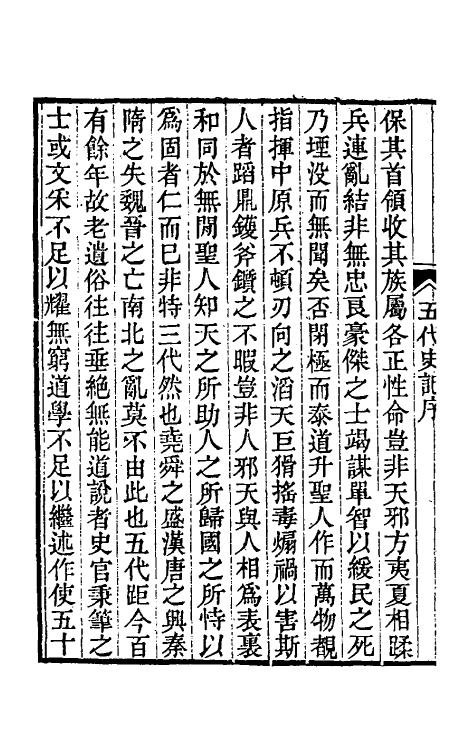 五代史記序
保其首領收其族屬各正性命豈非天邪方夷夏相蹂
兵連亂結非無忠良豪傑之士竭謀單智以緩民之死
乃堙没而無聞矣否閉極而泰道升聖人作而萬物覩
指揮中原兵不頓刃向之滔天巨猾搖毒煽禍以害斯
人者蹈鼎鑊斧鑕之不暇豈非人邪天與人相爲表裏
和同於無閒聖人知天之所助人之所歸國之所恃以
爲固者仁而已非特三代然也堯舜之盛漢唐之興秦
隋之失魏晉之亡南北之亂莫不由此也五代距今百
有餘年故老遺俗往往垂絶無能道說者史官秉筆之
士或文采不足以耀無窮道學不足以繼述作使五十